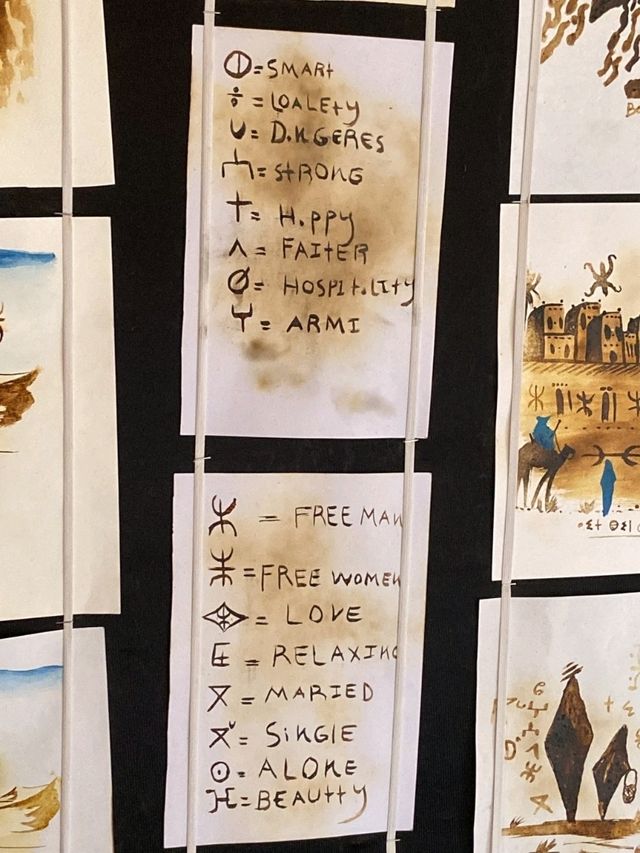 = SMARt
= LOALEty
= D.NGERES
= StRONG
= H.ppy
= FAItER
= HOSPIt.LIty
= ARMI
ⵣ = FREE MAN
= FREE WOMEN
= LOVE
= RELAXING
= MARIED
= SiNGlE
ⵙ = ALONE
= BEAUTTY